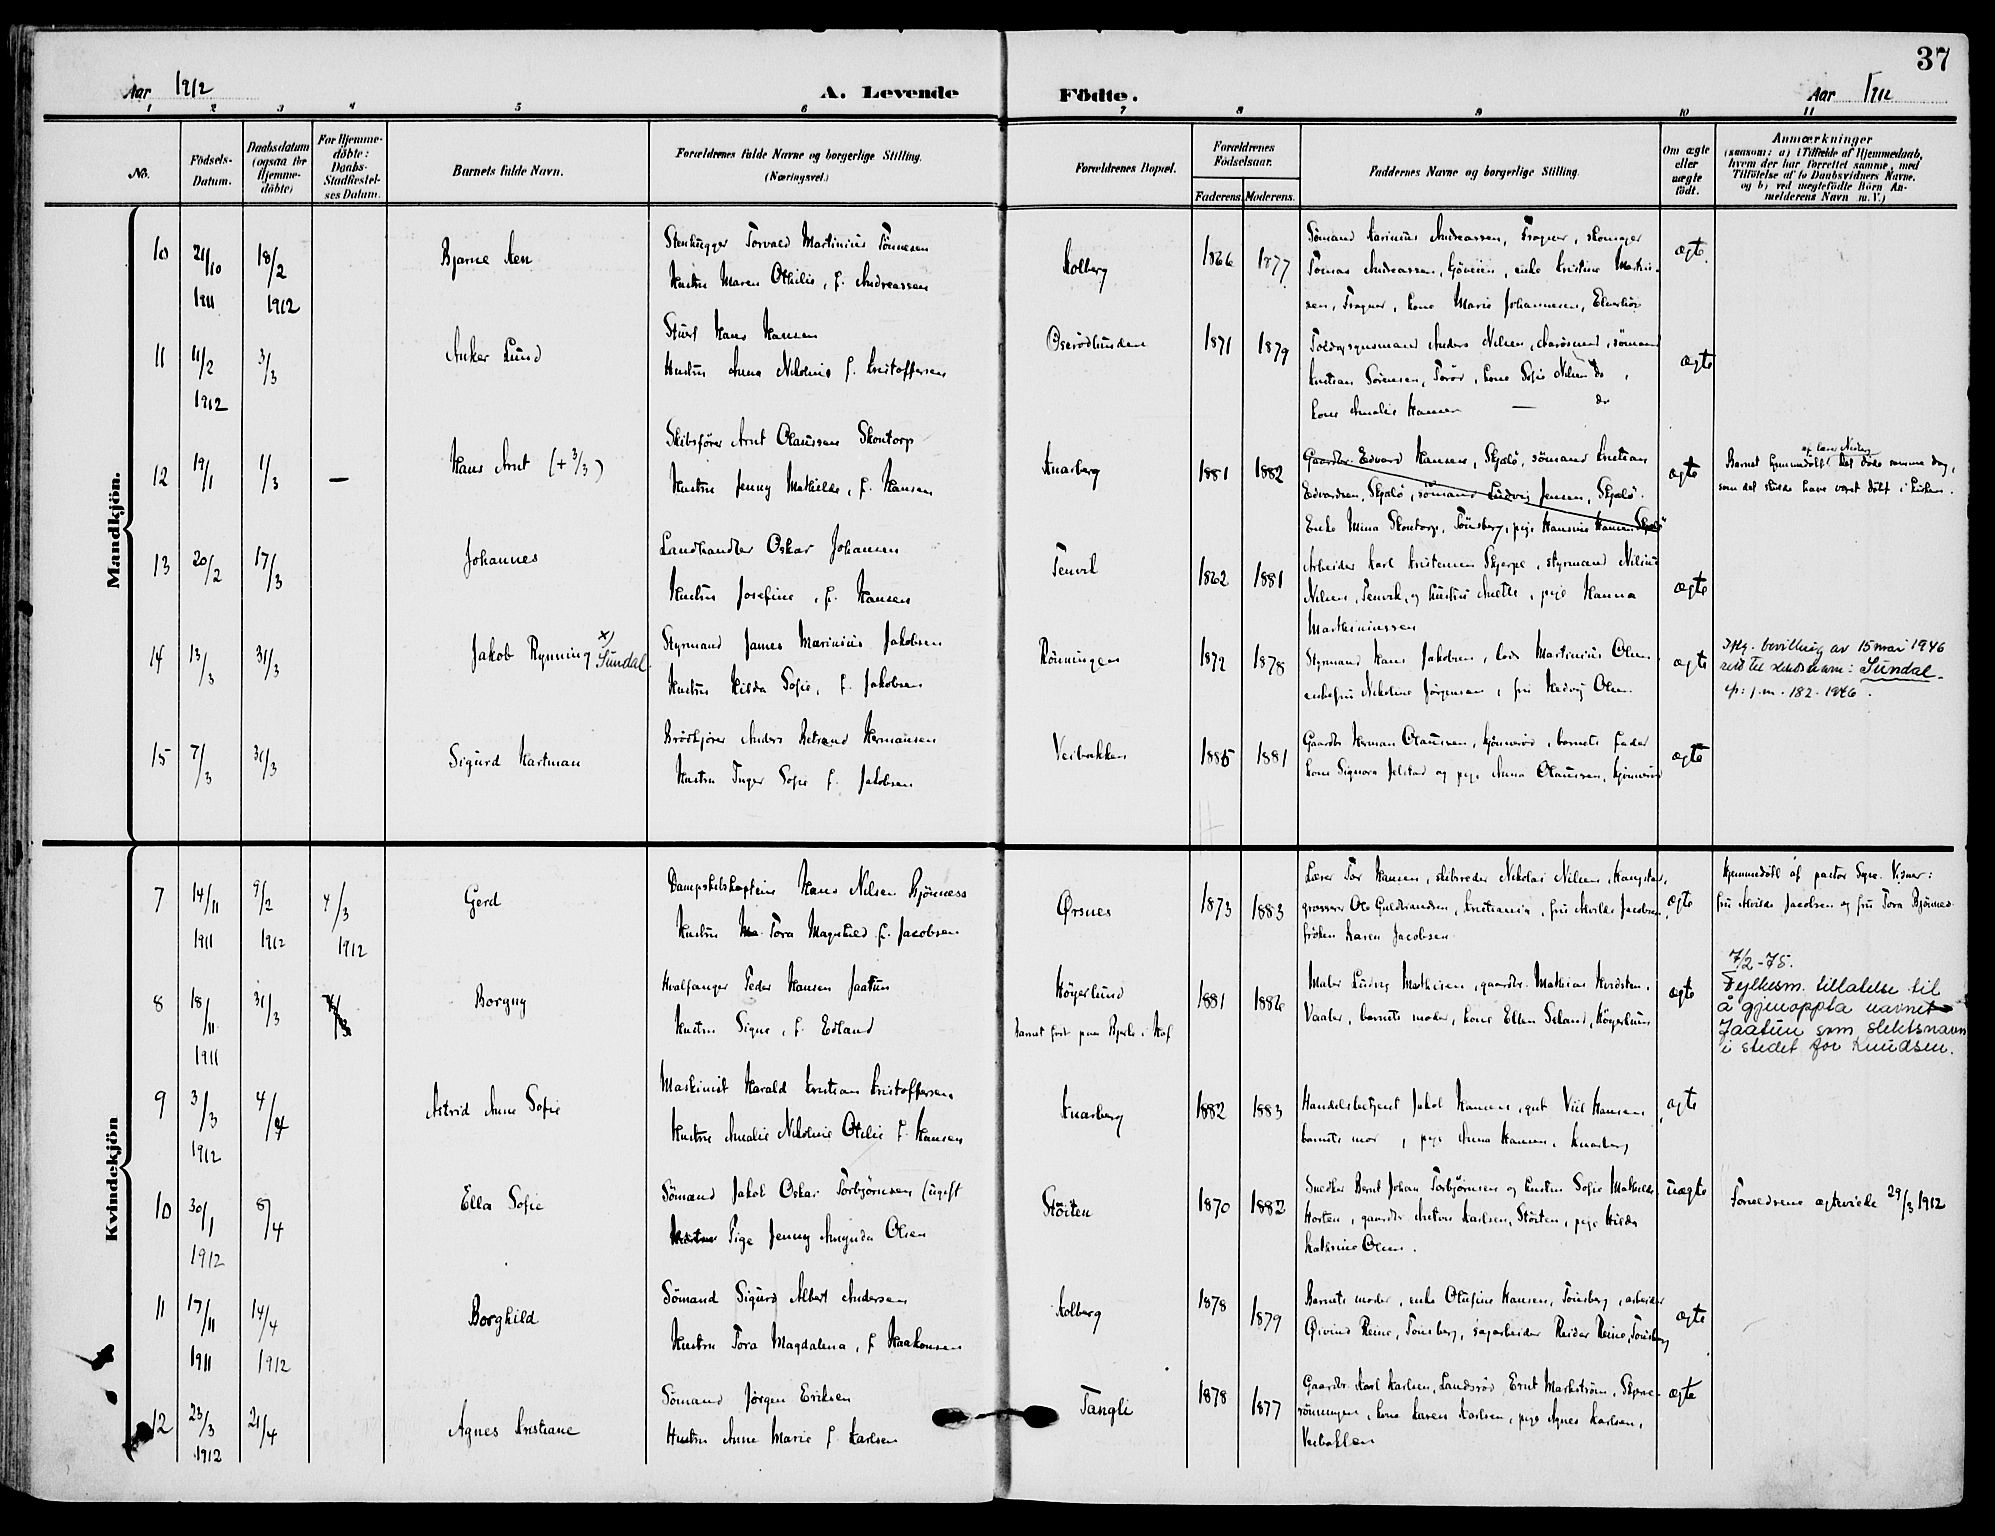 37
Aar 1912
A. Levende Födte.
Aar 1912
1 2 3 4 5 6 7 8 9 10 11
No.
Födsels-Datum.
Daabsdatum (ogsaa for Hjemme-döbte)
For Hjemme-döbte: Daabs-Stadfæstel-ses Datum.
Barnets fulde Navn.
Forældrenes fulde Navne og borgerlige Stilling. (Næringsvei.)
Forældrenes Bopæl.
Forældrenes Födselsaar.
Faderens. Moderens.
Faddernes Navne og borgerlige Stilling.
Om ægte eller uægte födt.
Anmærkninger
(saasom: a) i Tilfælde af Hjemmedaab, hvem der har forrettet samme, med Tilföielse af to Daabsvidners Navne, og b) ved uægtefödte Börn An-melderens Navn m. V.)
Mandkjön.
10 21/10 1911 18/2 1912
Bjarne
Stenhugger Torvald Martinius Tönnesen
Hustru Maren Othilie, f. Andreassen
Kolberg
1866 1877
Sömand Karinius Andreassen, Trogner, skomager
Tomas Andreassen, enke Kristine
sen, Trogner, kone Marie Johannesen,
ægte
11 11/2 1912 3/3
Anker Lund
Stuert Hans Hansen
Hustru Anna Nikoline f. Kristoffersen
Oserödlunden
1871 1879
Anders Nilsen, sömand
Kristian Sörensen, Torör, kone Sofie Nilsen do,
kone Amalie Hansen — do
ægte
12 19/1 1/3 —
Hans Arnt (+ 3/3)
Skibsförer Arnt Olaussen Skontorp
Hustru Jenny Mathilde, f. Hansen
Knarberg
1881 1882
Gaardbr. Edvard Hansen, Skjelö, sömand Kristian
Edvardsen, Skjelö, sömand Ludvig Jensen, Skjelö.
Enke Mina Skontorp, Tönsberg, pige Hansine Hansen Skjelö
ægte
Barnet hjemmedöbt. Det döde samme dag,
som det skulde have været döbt i kirken.
13 20/2 17/3
Johannes
Landhandler Oskar Johansen
Hustru Josefine, f. Hansen
Tenvik
1862 1881
Arbeider Karl Kristensen Skjerpe, styrmand
Nilsen, Tenvik, og hustru Anette, pige Hanna
Marthiniussen
ægte
14 13/3 31/3
Jakob Rynning x) Sundal
Styrmand James Marinius Jakobsen
Hustru Hilda Sofie, f. Jakobsen
Rönningen
1872 1878
Styrmand Hans Jakobsen, lods Martinius Olsen,
enkefru Nikoline Jörgensen, frk Hedvig Olsen.
ægte
Iflg. bevilling av 15 mai 1946
rett til slektsnavn: Sundal.
cfr. j.nr. 182-1946.
15 7/3 31/3
Sigurd Hartman
Brödkjörer Anders Betrand Hermansen
Hustru Inger Sofie f. Jakobsen
Veibakken
1885 1881
Gaardbr Herman Olaussen, barnets fader
kone Signora Jelstad og pige Anna Olaussen,
ægte
Kvindekjön
7 14/11 1911 9/2 1912 4/3 1912
Gerd
Dampskibskaptein Hans Nilsen Bjönness
Hustru Tora Magnhild f. Jacobsen
Örsnes
1873 1883
Læser Tor Hansen, skibsreder Nikolai Nilsen,
grosserer Ole Guldbrandsen, Kristiania, fru Alvilde Jacobsen,
fröken Karen Jacobsen
ægte
Hjemmedöbt af pastor Vidner:
fru Alvilde Jacobsen og fru Tora Bjönness
8 18/11 1911 31/3
Borgny
Hvalfanger Peder Hansen Jaatun
Hustru Signe, f. Edland
Höyerlund
1881 1886
Maler Ludvig Mathisen, gaardbr. Mathias
Vaaler, barnets moder, kone Ellen Seland, Höyerlund
ægte
7/2-75.
Fylkesm. tillatelse til
å gjenoppta navnet
Jaatun som slektsnavn
i stedet for Knudsen.
9 3/3 1912 4/4
Astrid Anne Sofie
Maskinist Harald Kristian Kristoffersen
Hustru Amalie Nikoline Otilie f. Hansen
Knarberg
1882 1883
Handelsbetjent Jakob Hansen, gut Hansen
barnets mor, pige Anna Hansen, Knarberg
ægte
10 30/1 1912 8/4
Ella Sofie
Sömand Jakob Oskar Torbjörnsen (ugift
Pige Jenny Amynda Olsen
Störten
1870 1882
Snedker Bernt Johan Torbjörnsen og hustru Sofie Mathilde
Horten, gaardbr Anton Karlsen, Störten, pige Hilda
Katherine Olsen.
uægte
Forældrene ægteviede 29/3 1912
11 17/11 1911 14/4 1912
Borghild
Sömand Sigurd Albert Andersen
Hustru Tora Magdalena, f. Haakonsen
Kolberg
1878 1879
Barnets moder, enke Olufine Hansen, Tönsberg, arbeider
Øivind Reine, Tönsberg, sagarbeider Reidar Reine, Tönsberg
ægte
12 23/3 1912 21/4
Agnes Kristiane
Sömand Jörgen Eriksen
Hustru Anne Marie f. Karlsen
Tangli
1878 1877
Gaardbr Karl Karlsen, Landsröd, Ernt Markström,
rönningen, kone Karen Karlsen, pige Agnes Karlsen,
Veibakken
ægte